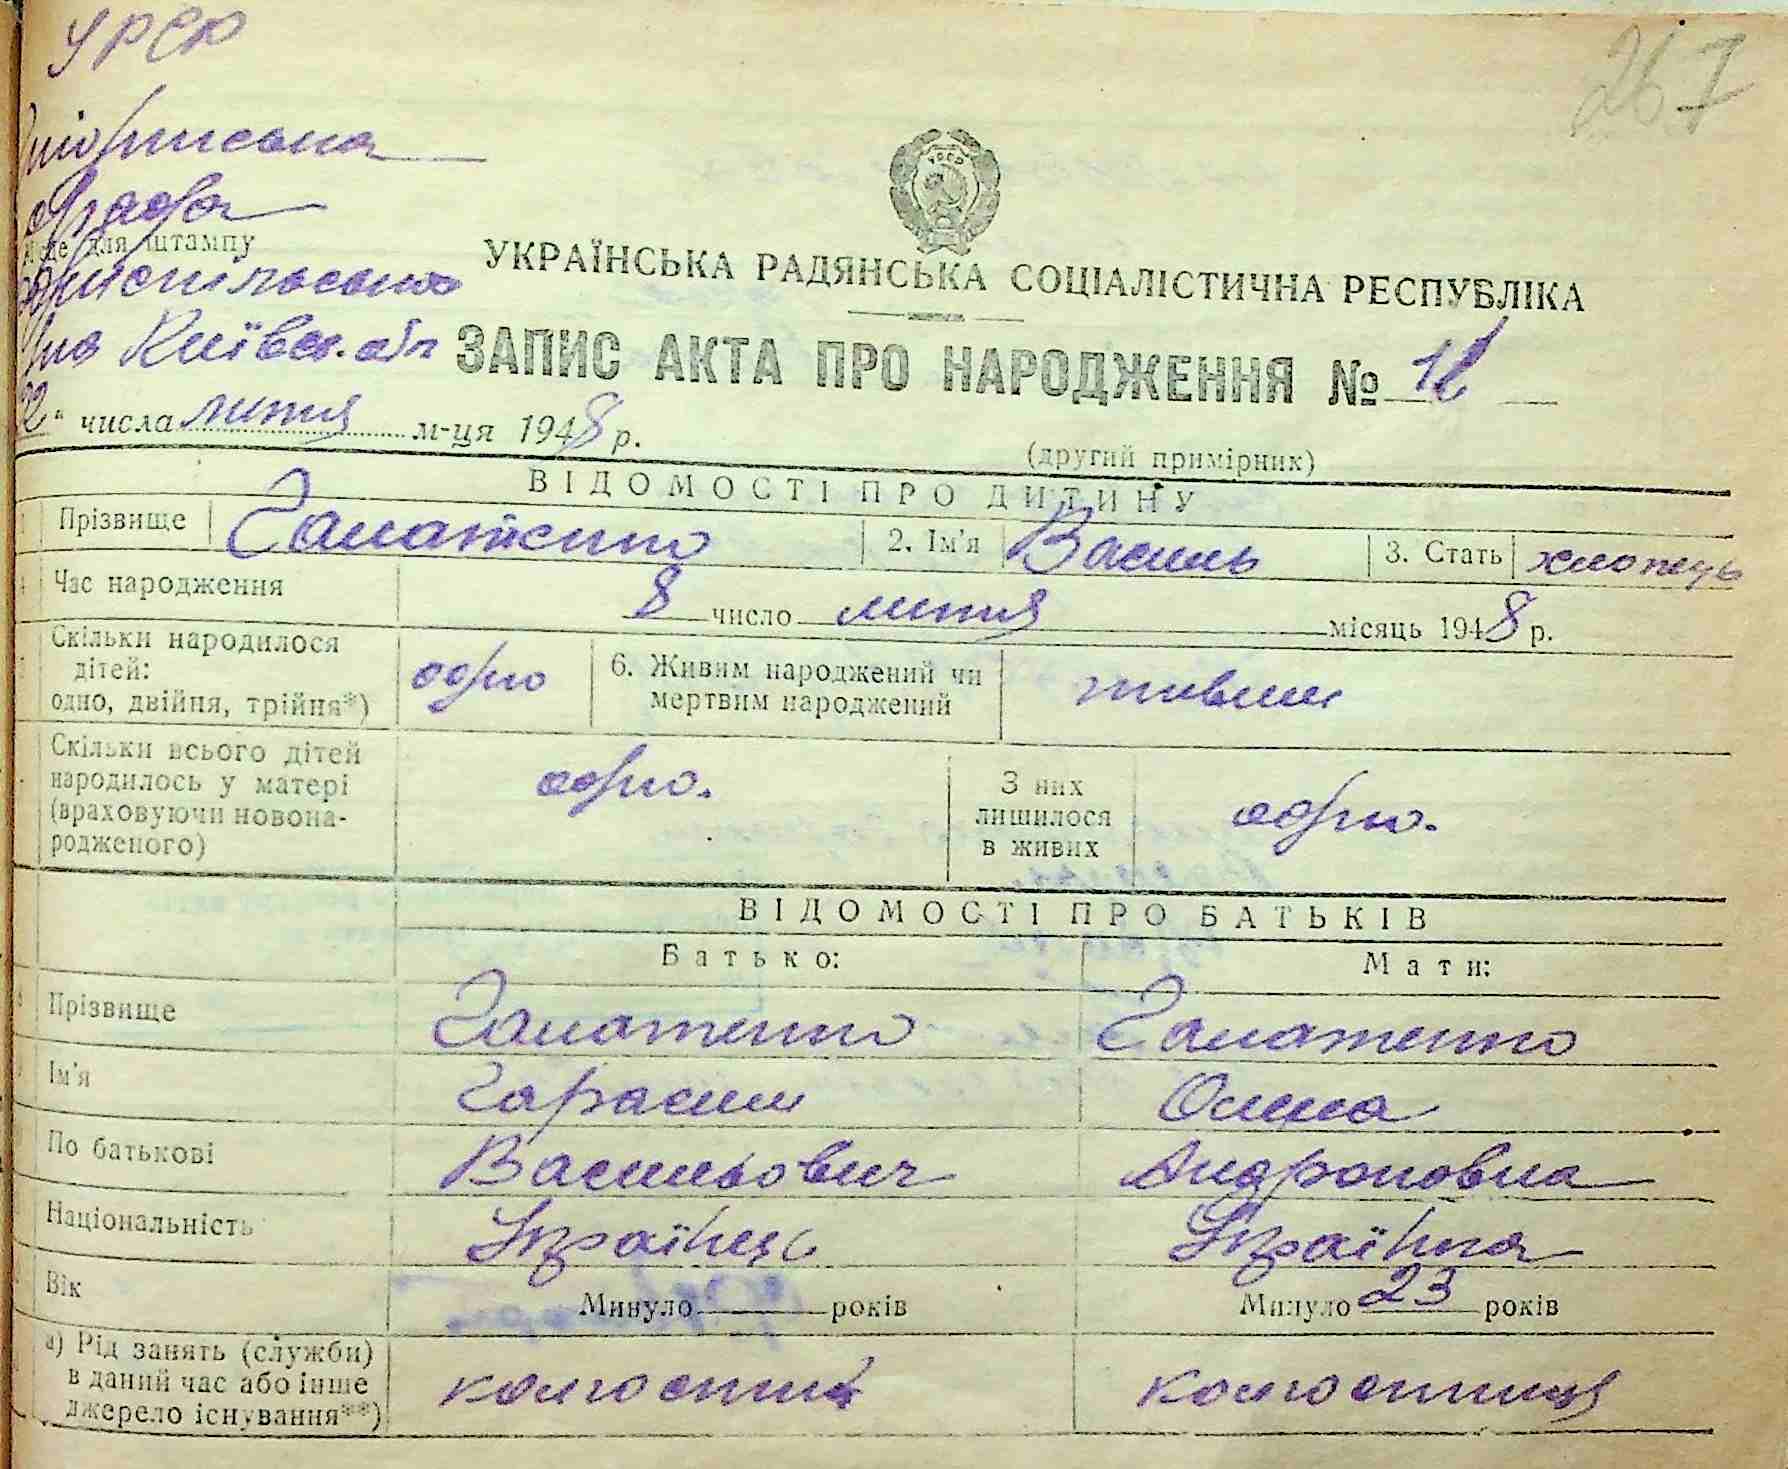 УРСР
267
сільрада
Місце для штампу
Бориспільського
р-на Київськ. обл
УССР
УКРАЇНСЬКА РАДЯНСЬКА СОЦІАЛІСТИЧНА РЕСПУБЛІКА
ЗАПИС АКТА ПРО НАРОДЖЕННЯ №
22 " числа лютня м-ця 1948 р.
(другий примірник)
ВІДОМОСТІ ПРО ДИТИНУ
Прізвище Гаматенко 2. Ім'я Василь 3. Стать хлопець
Час народження 8 число лютня місяць 1948 р.
Скільки народилося дітей: одно, двійня, трійня*) одно 6. Живим народжений чи мертвим народжений живим
Скільки всього дітей народилось у матері (враховуючи новонародженого) одно. З них лишилося в живих одно.
ВІДОМОСТІ ПРО БАТЬКІВ
Батько: Мати:
Прізвище Гаматенко Гаматенко
Ім'я Гарасим Олена
По батькові Васильович Андроновна
Національність Українець Українка
Вік Минуло років Минуло 23 років
а) Рід занять (служби) в даний час або інше джерело існування**) колгоспник колгоспниця